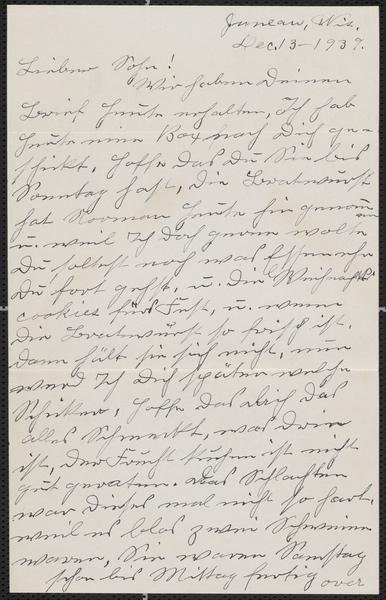 Juneau, Wis.
Dec. 13-1939.
Lieber Sohn!
Wir haben Deinen
Brief heute erhalten, Ich hab
heute eine Box nach Dich ge-
schikt, hoffe das Du Sie bis
Sonntag hast, die Bratwurst
hat Norman heute hin genom
men
u. weil Ich doch gerne wolte
Du soltest noch was Essen ehe
Du fort gehst, u. die Weihnachts
cookies fürs Fest, u. wenn
die Bratwurst so frisch ist,
dann hält sie sich nicht, nun
werd Ich Dich später welche
Schiken, hoffe das Dich das
alles Schmeckt, was drin
ist, der Frucht Kuchen ist nicht
gut geraten. Das Schlachten
war dieses mal nicht so hart,
weil es blos zwei Schweine
waren, Sie waren Samstag
schon bis Mittag fertig over